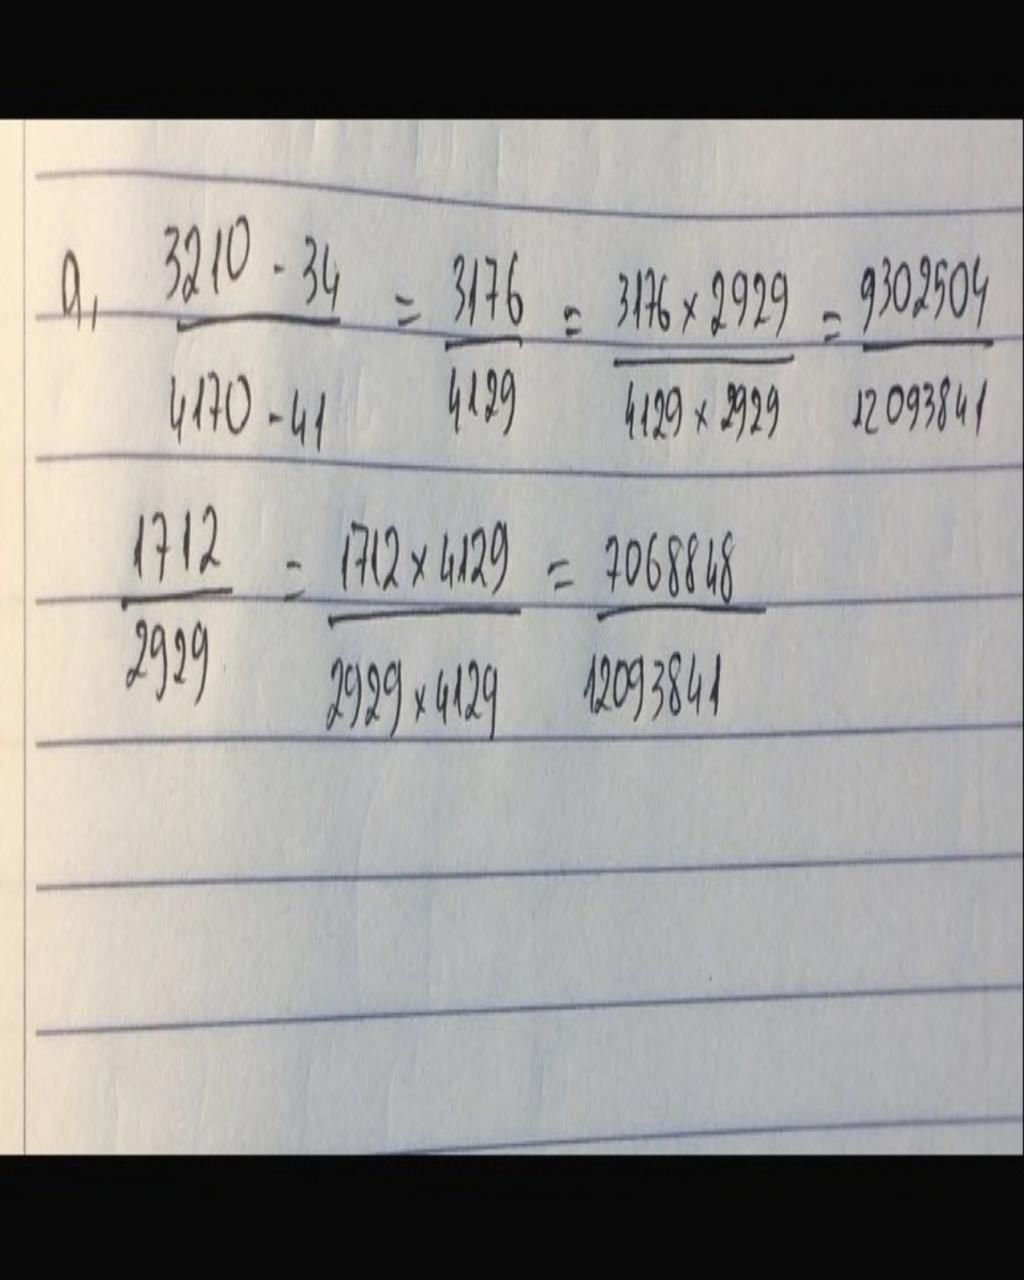 a, 3210 - 34 / 4170 - 41 = 3176 / 4129 = 3176 x 2929 / 4129 x 2929 = 9302504 / 12093841
1712 / 2929 = 1712 x 4129 / 2929 x 4129 = 7068848 / 12093841